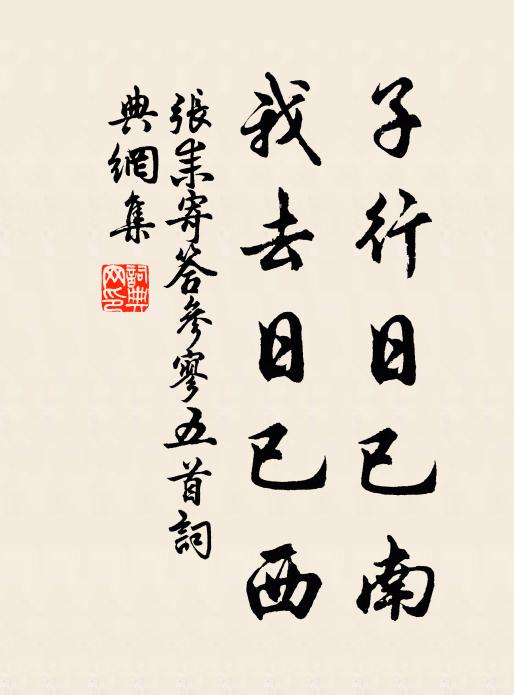 子行日已南
我去日已西
張耒寄答參寥五首詞
典網集
詞典網印